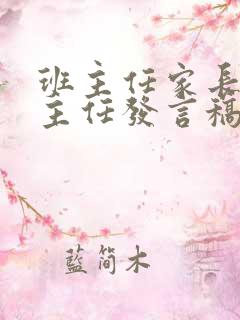 班主任家長
主任發言稿
藍簡木